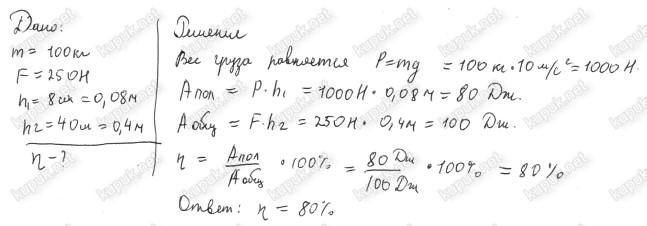 Дано:
m = 100 кг
F = 250 Н
h₁ = 8 см = 0,08 м
h₂ = 40 см = 0,4 м
η - ?
Решение
Вес груза равняется P = mg = 100 кг · 10 м/с² = 1000 Н.
Aпол = P · h₁ = 1000 Н · 0,08 м = 80 Дж.
Aобщ = F · h₂ = 250 Н · 0,4 м = 100 Дж.
η = Aпол / Aобщ · 100% = 80 Дж / 100 Дж · 100% = 80%
Ответ: η = 80%